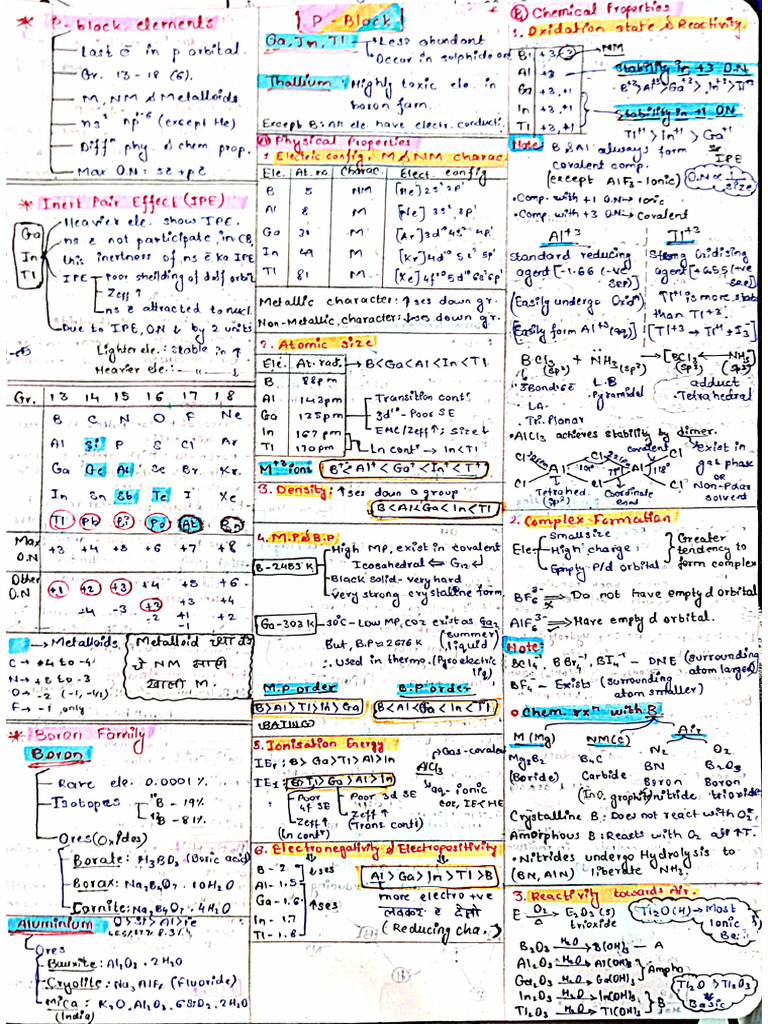 * P-block elements
Last ē in p orbital.
Gr. 13 - 18 (6).
M, NM & Metalloids
ns² np¹⁻⁶ (except He)
Diffⁿ phy. & chem prop.
Max O.N: sē + pē
* Inert Pair Effect (IPE)
Ga
In
Tl
Heavier ele. show IPE.
ns ē not participate, in CB,
this inertness of ns ē ka IPE
IPE Poor sheilding of d & f orbit
Zeff ↑
ns ē attracted to nucl.
Due to IPE, O.N ↓ by 2 units
Lighter ele.: Stable in ↑
Heavier ele.: — " — ↓
Gr. 13 14 15 16 17 18
B C N O F Ne
Al Si P S Cl Ar
Ga Ge As Se Br Kr
In Sn Sb Te I Xe
Tl Pb Bi Po At Rn
Max O.N +3 +4 +5 +6 +7 +8
Other O.N +1 +2 +3 +4 +5 +6
-4 -3 +2 +3 +4
-2 +1 +2
-1
→ Metalloids
C → +4 to -4
N → +5 to -3
O → -2 (-1, -1/2)
F → -1 only
Metalloid
NM
M.
* Boron Family
Boron
Rare ele: 0.0001 %.
Isotopes ¹⁰B - 19%
¹¹B - 81%
Ores (Oxides)
Borate: H₃BO₃ (Boric acid)
Borax: Na₂B₄O₇ · 10H₂O
Cornite: Na₂B₄O₇ · 4H₂O
Aluminium O > Si > Al > Fe
Ores
Bauxite: Al₂O₃ · 2H₂O
Cryolite: Na₃AlF₆ (Fluoride)
Mica: K₂O, Al₂O₃, 6SiO₂ · 2H₂O
(India)
P-Block
Ga, In, Tl → Less abundant
Occur in sulphide ore
Thallium: Highly toxic ele. in
boron fam.
Except B: All ele. have electr. conducti.
Physical Properties
1. Electric config. M & NM charac
Ele. At. no Charac. Elect. config
B 5 NM [He] 2s² 2p¹
Al 8 M [Ne] 3s² 3p¹
Ga 31 M [Ar] 3d¹⁰ 4s² 4p¹
In 49 M [Kr] 4d¹⁰ 5s² 5p¹
Tl 81 M [Xe] 4f¹⁴ 5d¹⁰ 6s² 6p¹
Metallic character: ↑ses down gr.
Non-Metallic character: ↓ses down gr.
2. Atomic size
Ele. At. radi. → B < Ga < Al < In < Tl
B 88 pm
Al 143 pm
Ga 135 pm
In 167 pm
Tl 170 pm
Transition contⁿ
3d¹⁰ - Poor SE
ENC/Zeff ↑; Size ↓
Ln contⁿ → In < Tl
M⁺³ ions B⁺³ < Al⁺³ < Ga⁺³ < In⁺³ < Tl⁺³
3. Density: ↑ses down a group
B < Al < Ga < In < Tl
4. M.P & B.P
B - 2453 K
High MP, exist in covalent
Icosahedral ⇐ G₁₂
Black solid - very hard
Very strong crystalline form
Ga - 303 K
30°C - Low MP, CO₂ exist as Ga₂
(Summer)
liquid
But, B.P = 2676 K
∴ Used in thermo. (Pyro electric
liq)
M.P order B.P order
B > Al > Tl > In > Ga
B < Al < Ga < In < Tl
5. Ionisation Energy
IE₁: B > Ga > Tl > Al > In
IE₁: B > Tl > Ga > Al > In
Poor 4f SE
Zeff ↑
(Ln contⁿ)
Poor 3d SE
Zeff ↑
(Trans. contⁿ)
AlCl₃
Gas - covalent
aq - ionic
coz, IE < HE
6. Electronegativity & Electropositivity
B - 2.
Al - 1.5
Ga - 1.6
In - 1.7
Tl - 1.8
↓ses
↑ses
Al > Ga > In > Tl > B
more electro +ve
(Reducing cha.)
Chemical Properties
1. Oxidation state & Reactivity.
B +3, -3 → NM
Al +3
Ga +3, +1
In +3, +1
Tl +3, +1
Stability in +3 O.N
B⁺³ > Al⁺³ > Ga⁺³ > In⁺³ > Tl⁺³
Stability in +1 O.N
Tl⁺¹ > In⁺¹ > Ga⁺¹
IPE
Note: B & Al always form
covalent comp.
(except AlF₃ - Ionic)
• Comp. with +1 O.N → Ionic
• Comp. with +3 O.N → Covalent
Al⁺³
Standard reducing
agent [-1.66 (-ve
SRP)]
(Easily undergo Oxiⁿ)
(Easily form Al⁺³(aq))
Tl⁺³
Strong Oxidising
agent (+ve
SRP)]
Tl⁺¹ is more stab
than Tl⁺³
[Tl⁺³ → Tl⁺¹ + I₃⁻]
BCl₃ + N̈H₃ → [BCl₃ ← NH₃]
(sp²) (sp³) (sp³) (sp³)
• 3 Bond sē
LA.
• Tri. Planar
L.B
Pyramidal
adduct
• Tetrahedral
• AlCl₃ achieves stability by dimer.
covalent
Exist in
gas phase
OR
Non-Polar
solvent
Tetrahed.
Coordinate
Bond
2. Complex Formation
Ele Small size
High charge
Empty P/d orbital
Greater
tendency to
form complex
BF₆³⁻ ⇒ Do not have empty d orbital
AlF₆³⁻ ⇒ Have empty d orbital.
Note:
BCl₄⁻¹ BBr₄⁻¹, BI₄⁻¹ - DNE (surrounding
atom larger)
BF₄⁻ - Exists (surrounding
atom smaller)
Chem. rxⁿ with B
M (Mg) NM (C) Air
N₂ O₂
MgB₂ B₄C BN B₂O₃
(Boride) Carbide Boron Boron
nitride trioxide
Crystalline B: Does not react with O₂.
Amorphous B: Reacts with O₂ at ↑T.
• Nitrides undergo Hydrolysis to
(BN, AlN) liberate NH₃.
3. Reactivity towards Air.
E —O₂/Δ→ E₂O₃(s)
trioxide
Tl₂O(H) → Most
Ionic &
Basic
B₂O₃ —H₂O→ B(OH)₃ — A
Al₂O₃ —H₂O→ Al(OH)₃
Ga₂O₃ —H₂O→ Ga(OH)₃
Ampho
In₂O₃ —H₂O→ In(OH)₃
Tl₂O₃ —H₂O→ Tl(OH)₃
B
Tl₂O > Tl₂O₃
Basic